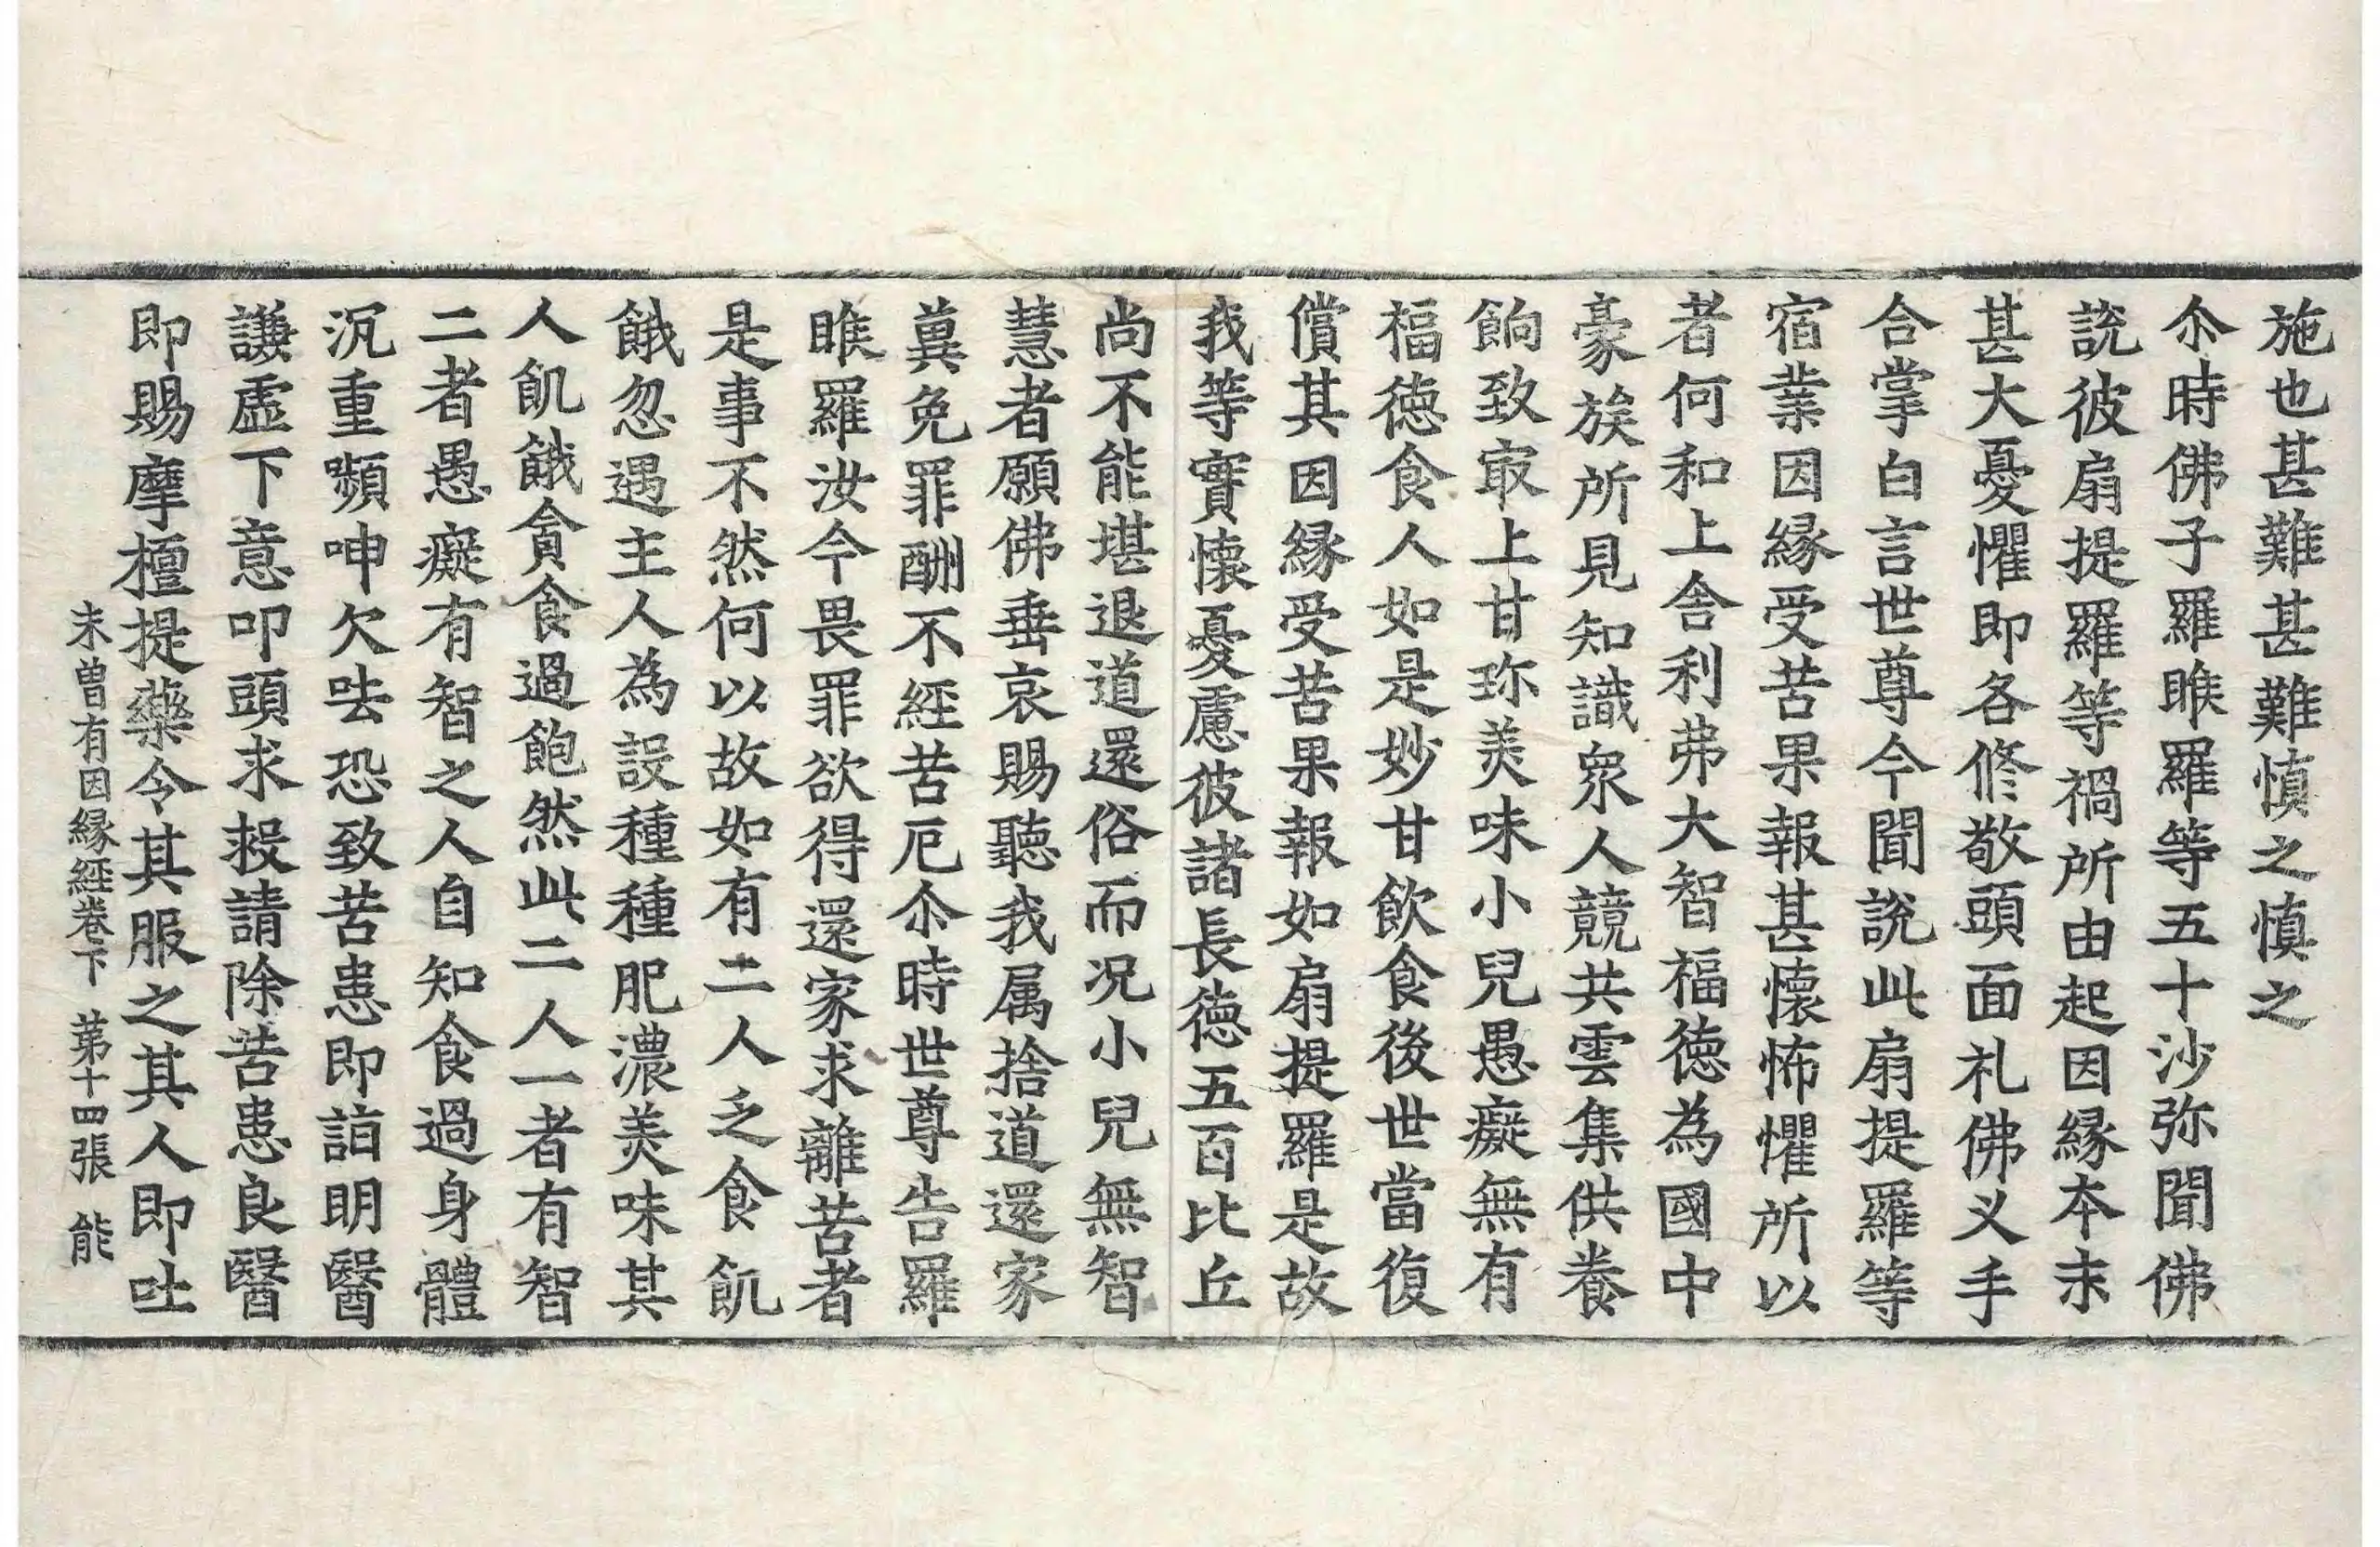 施也甚難甚難慎之慎之
尒時佛子羅睺羅等五十沙弥聞佛
說彼扇提羅等禍所由起因縁本末
甚大憂懼即各修敬頭面礼佛义手
合掌白言世尊今聞說此扇提羅等
宿業因縁受苦果報甚懷怖懼所以
者何和上舍利弗大智福徳為國中
豪族所見知識衆人競共雲集供養
餉致㝡上甘珎羙味小兒愚癡無有
福徳食人如是妙甘飲食後世當復
償其因縁受苦果報如扇提羅是故
我等實懷憂慮彼諸長徳五百比丘
尚不能堪退道還俗而況小兒無智
慧者願佛垂哀賜聽我属捨道還家
兾免罪酬不經苦厄尒時世尊告羅
睺羅汝今畏罪欲得還家求離苦者
是事不然何以故如有二人乏食飢
餓忽遇主人為設種種肥濃羙味其
人飢餓貪食過飽然此二人一者有智
二者愚癡有智之人自知食過身體
沉重嚬呻欠呿恐致苦患即詣明醫
謙虛下意叩頭求救請除苦患良醫
即賜摩檀提藥令其服之其人即吐
未曽有因縁經卷下 第十四張 能